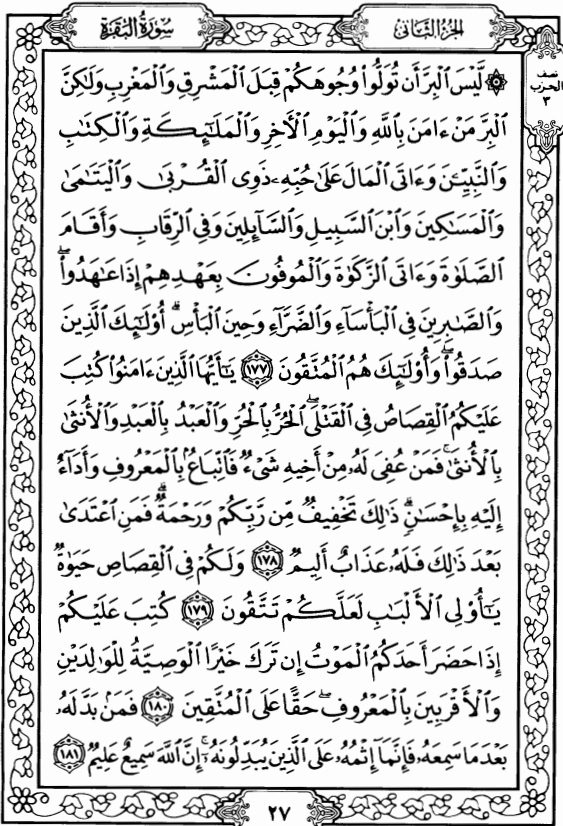 سُورَةُ البَقَرَةِ
الجُزْءُ الثَّانِي
نصف
الحزب
٣
۞ لَّيْسَ ٱلْبِرَّ أَن تُوَلُّوا۟ وُجُوهَكُمْ قِبَلَ ٱلْمَشْرِقِ وَٱلْمَغْرِبِ وَلَٰكِنَّ
ٱلْبِرَّ مَنْ ءَامَنَ بِٱللَّهِ وَٱلْيَوْمِ ٱلْـَٔاخِرِ وَٱلْمَلَٰٓئِكَةِ وَٱلْكِتَٰبِ
وَٱلنَّبِيِّـۧنَ وَءَاتَى ٱلْمَالَ عَلَىٰ حُبِّهِۦ ذَوِى ٱلْقُرْبَىٰ وَٱلْيَتَٰمَىٰ
وَٱلْمَسَٰكِينَ وَٱبْنَ ٱلسَّبِيلِ وَٱلسَّآئِلِينَ وَفِى ٱلرِّقَابِ وَأَقَامَ
ٱلصَّلَوٰةَ وَءَاتَى ٱلزَّكَوٰةَ وَٱلْمُوفُونَ بِعَهْدِهِمْ إِذَا عَٰهَدُوا۟ۖ
وَٱلصَّٰبِرِينَ فِى ٱلْبَأْسَآءِ وَٱلضَّرَّآءِ وَحِينَ ٱلْبَأْسِۗ أُو۟لَٰٓئِكَ ٱلَّذِينَ
صَدَقُوا۟ۖ وَأُو۟لَٰٓئِكَ هُمُ ٱلْمُتَّقُونَ ١٧٧ يَٰٓأَيُّهَا ٱلَّذِينَ ءَامَنُوا۟ كُتِبَ
عَلَيْكُمُ ٱلْقِصَاصُ فِى ٱلْقَتْلَىۖ ٱلْحُرُّ بِٱلْحُرِّ وَٱلْعَبْدُ بِٱلْعَبْدِ وَٱلْأُنثَىٰ
بِٱلْأُنثَىٰۚ فَمَنْ عُفِىَ لَهُۥ مِنْ أَخِيهِ شَىْءٌ فَٱتِّبَاعٌۢ بِٱلْمَعْرُوفِ وَأَدَآءٌ
إِلَيْهِ بِإِحْسَٰنٍۗ ذَٰلِكَ تَخْفِيفٌ مِّن رَّبِّكُمْ وَرَحْمَةٌۗ فَمَنِ ٱعْتَدَىٰ
بَعْدَ ذَٰلِكَ فَلَهُۥ عَذَابٌ أَلِيمٌ ١٧٨ وَلَكُمْ فِى ٱلْقِصَاصِ حَيَوٰةٌ
يَٰٓأُو۟لِى ٱلْأَلْبَٰبِ لَعَلَّكُمْ تَتَّقُونَ ١٧٩ كُتِبَ عَلَيْكُمْ
إِذَا حَضَرَ أَحَدَكُمُ ٱلْمَوْتُ إِن تَرَكَ خَيْرًا ٱلْوَصِيَّةُ لِلْوَٰلِدَيْنِ
وَٱلْأَقْرَبِينَ بِٱلْمَعْرُوفِۖ حَقًّا عَلَى ٱلْمُتَّقِينَ ١٨٠ فَمَنۢ بَدَّلَهُۥ
بَعْدَ مَا سَمِعَهُۥ فَإِنَّمَآ إِثْمُهُۥ عَلَى ٱلَّذِينَ يُبَدِّلُونَهُۥٓۚ إِنَّ ٱللَّهَ سَمِيعٌ عَلِيمٌ ١٨١
٢٧